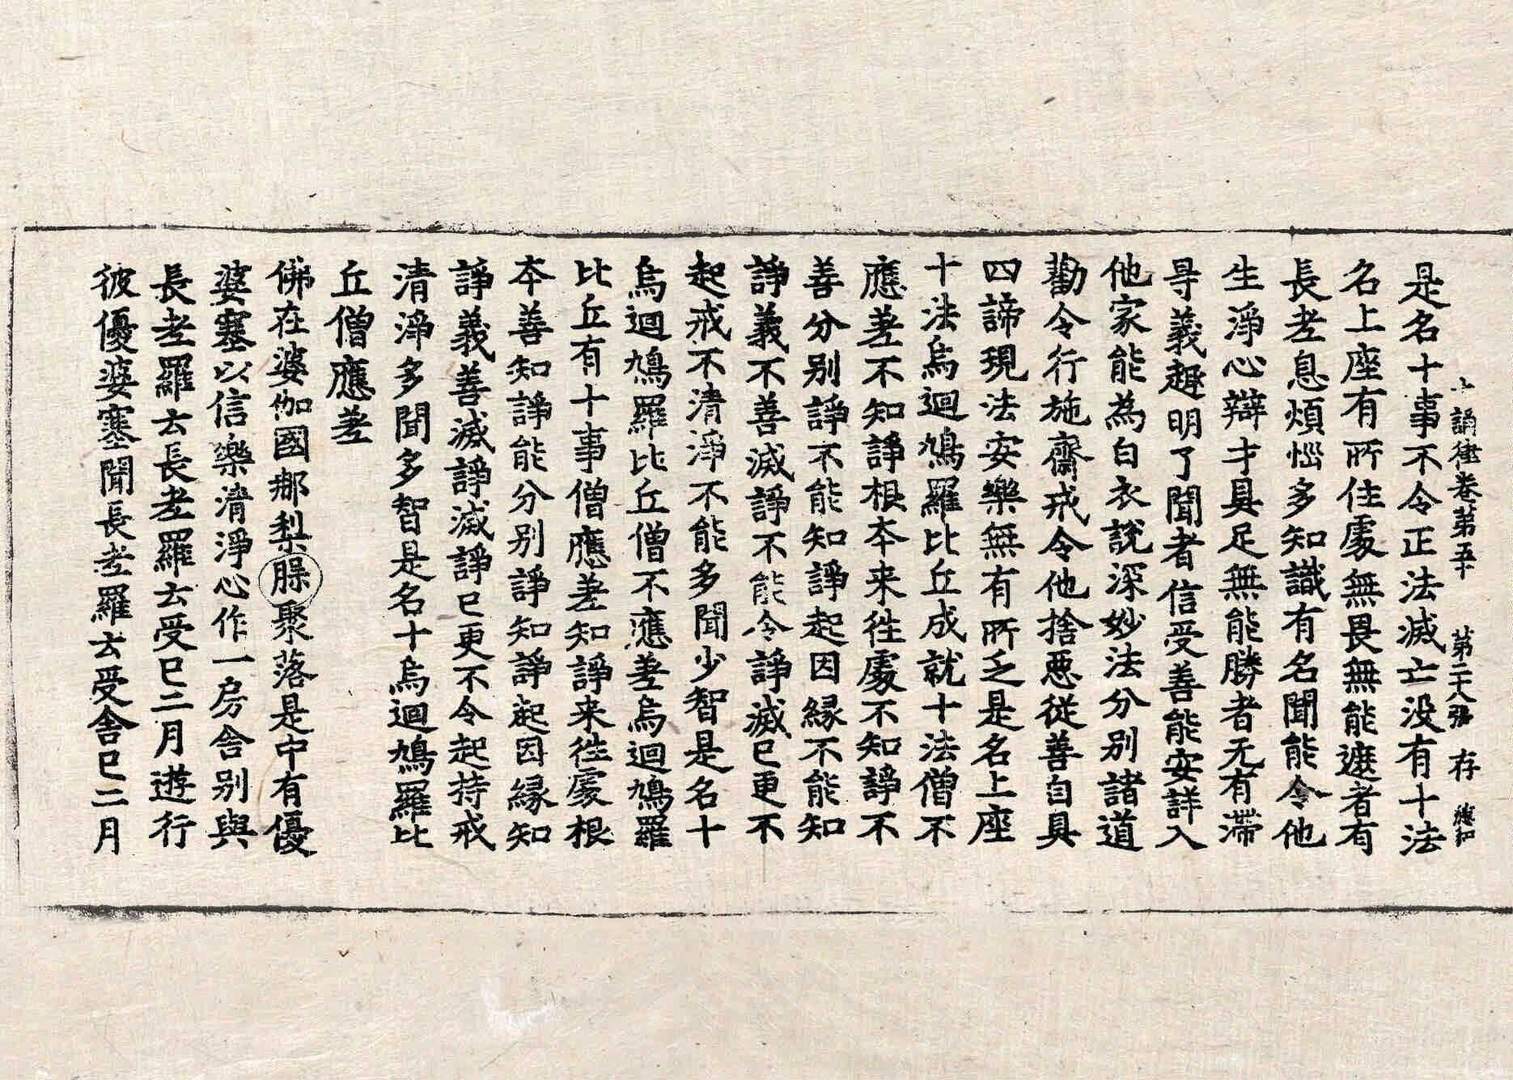 十誦律卷第五十 第二十八張 存
是名十事不令正法滅亡没有十法
名上座有所住處無畏無能遮者有
長老息煩惱多知識有名聞能令他
生淨心辯才具足無能勝者无有滯
㝵義趣明了聞者信受善能安詳入
他家能為白衣說深妙法分別諸道
勸令行施齋戒令他捨惡從善自具
四諦現法安樂無有所乏是名上座
十法烏迴鳩羅比丘成就十法僧不
應差不知諍根本来徃處不知諍不
善分別諍不能知諍起因緣不能知
諍義不善滅諍不能令諍滅已更不
起戒不清淨不能多聞少智是名十
烏迴鳩羅比丘僧不應差烏迴鳩羅
比丘有十事僧應差知諍来徃處根
本善知諍能分別諍知諍起因緣知
諍義善滅諍滅諍已更不令起持戒
清淨多聞多智是名十烏迴鳩羅比
丘僧應差
佛在婆伽國那梨臊聚落是中有優
婆塞以信樂清淨心作一房舍別與
長老羅云長老羅云受已二月遊行
彼優婆塞聞長老羅云受舍已二月